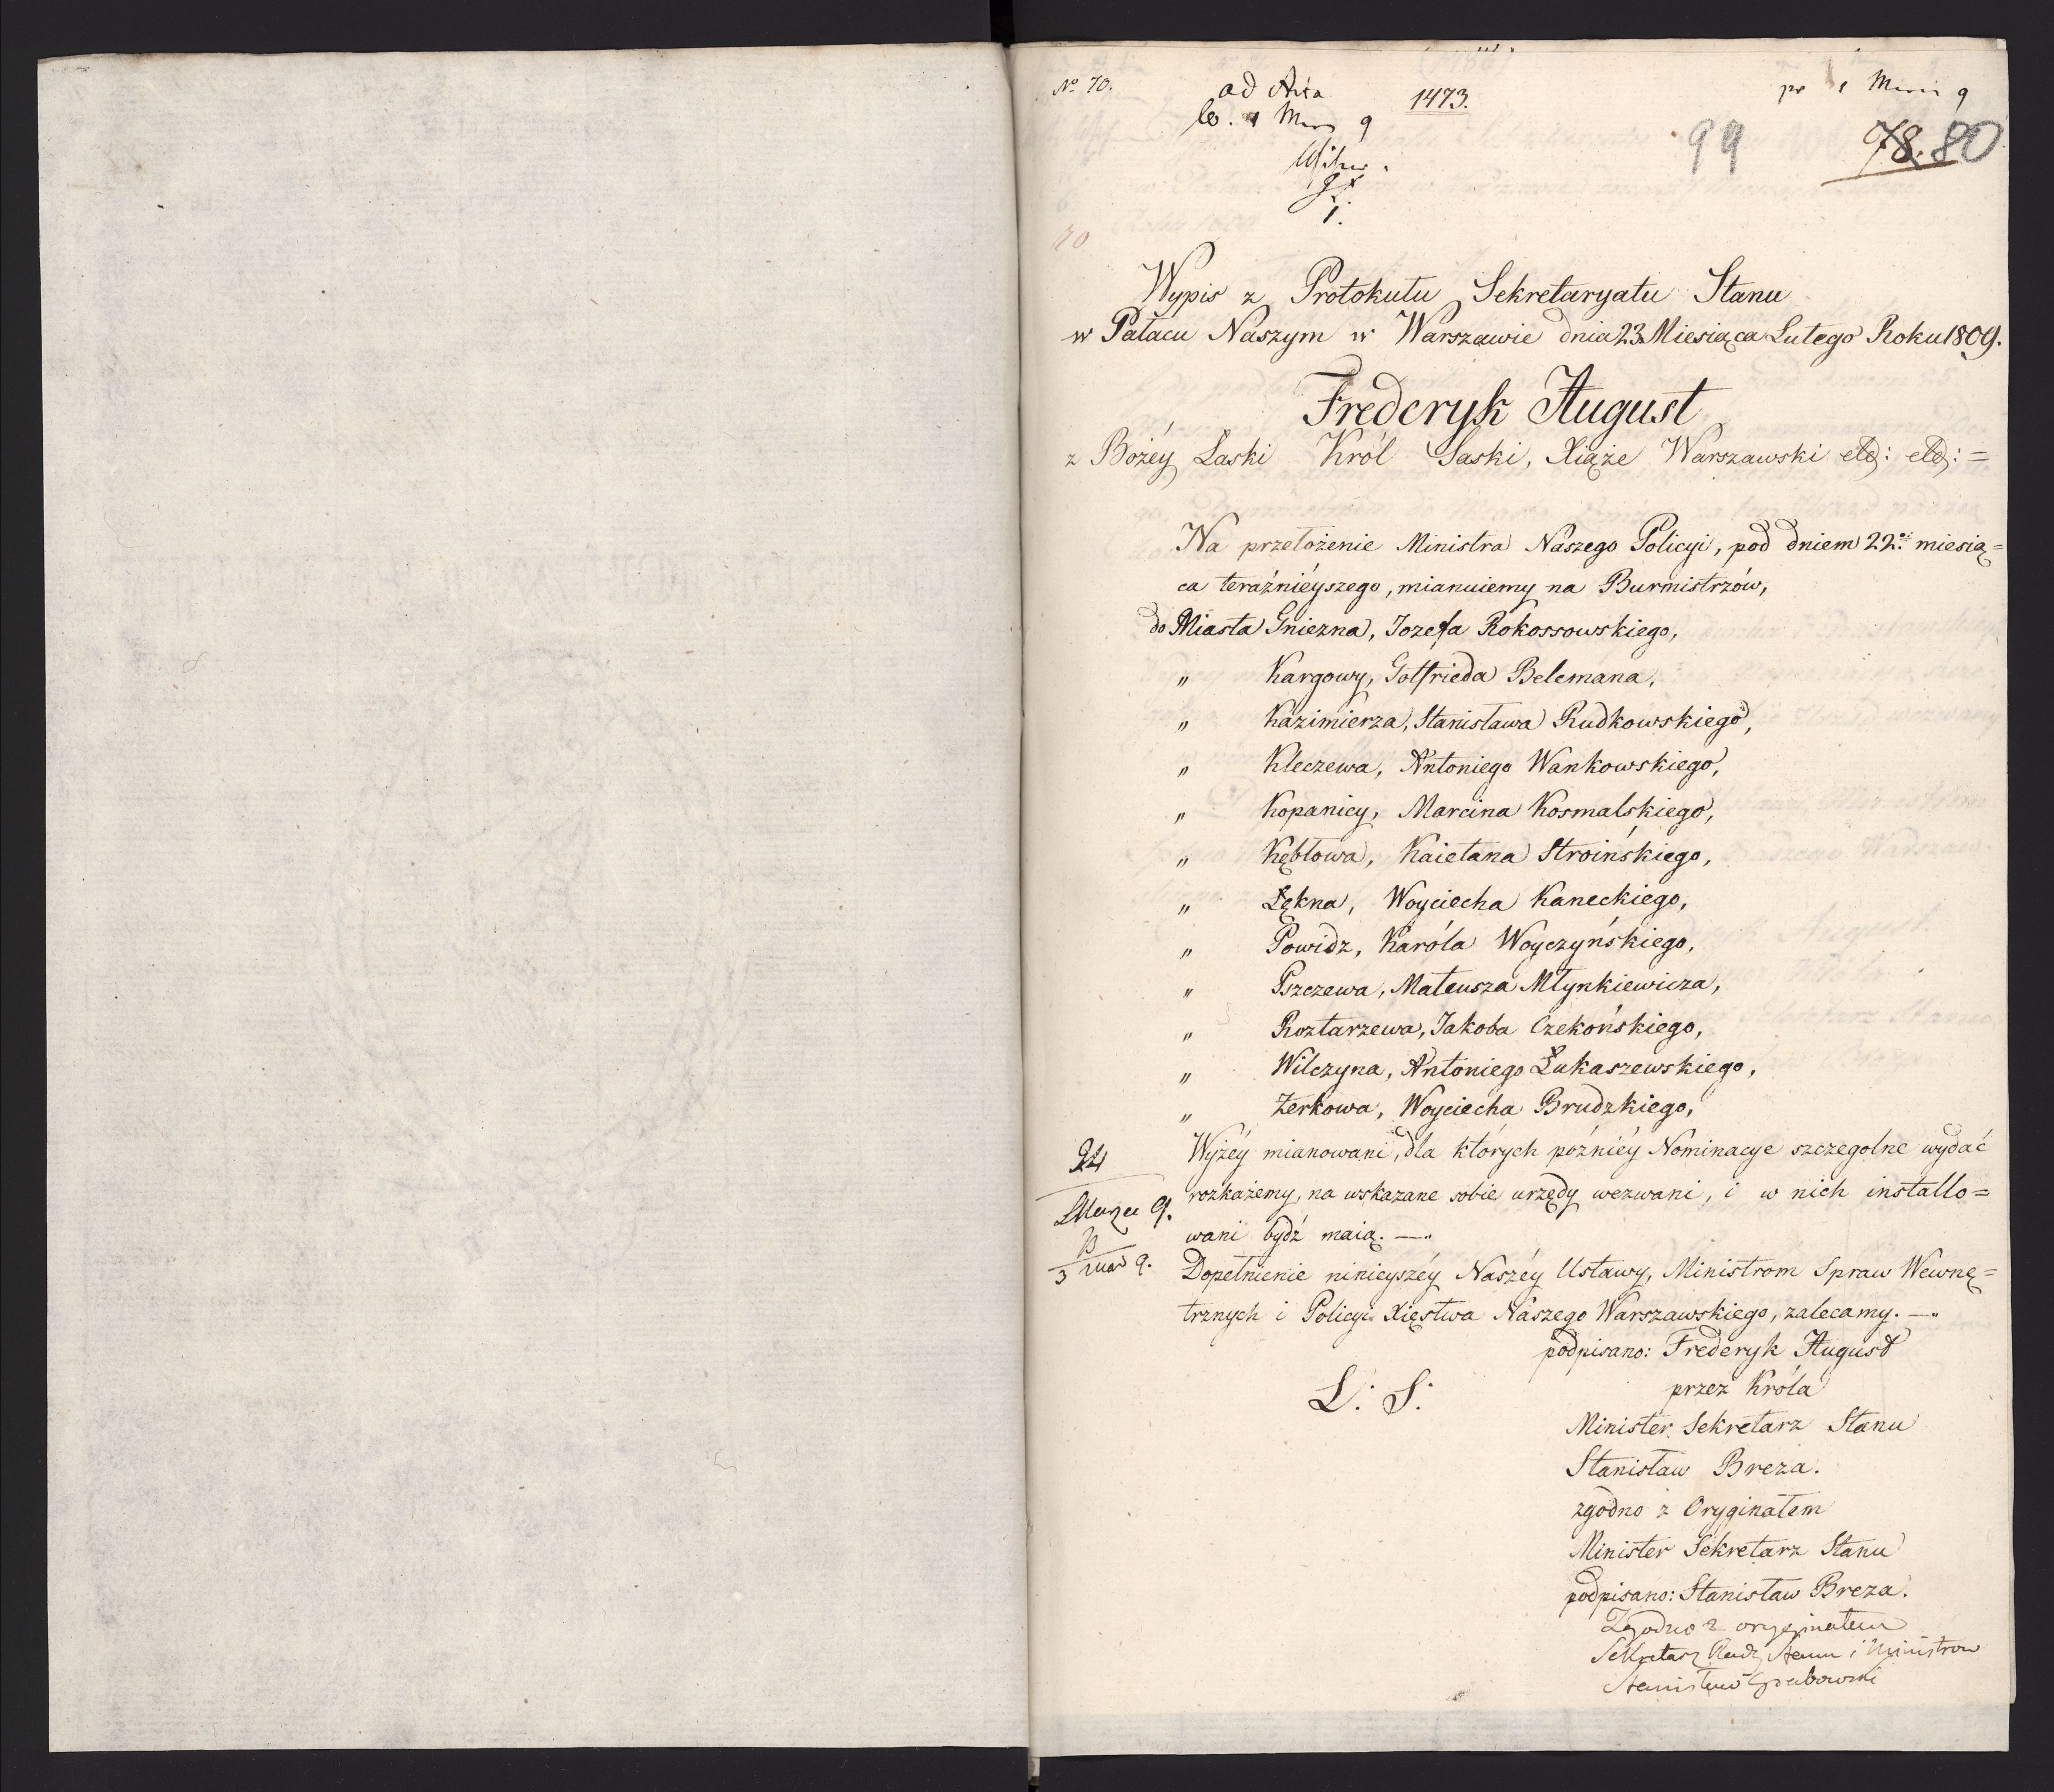 № 70.
ad Acta
1473.
99
78. 80
70
Wypis z Protokułu Sekretaryatu Stanu
w Pałacu Naszym w Warszawie dnia 23 Miesiąca Lutego Roku 1809.
Frederyk August
z Bożéy Łaski Król Saski, Xiąże Warszawski etc: etc: =
Na przełożenie Ministra Naszego Policyi, pod dniem 22. miesią=
ca teraźniéyszego, mianuiemy na Burmistrzów,
do Miasta Gniezna, Jozefa Rokossowskiego,
" Kargowy, Gotfrieda Belemana,
" Kazimierza, Stanisława Rudkowskiego,
" Kleczewa, Antoniego Wankowskiego,
" Kopanicy, Marcina Kosmalskiego,
" Kębłowa, Kaietana Stroińskiego,
" Łękna, Woyciecha Kaneckiego,
" Powidz, Karóla Woyczyńskiego,
" Pszczewa, Mateusza Młynkiewicza,
" Roztarzewa, Jakoba Czekońskiego,
" Wilczyna, Antoniego Łukaszewskiego,
" Żerkowa, Woyciecha Brudzkiego,
Wyżéy mianowani, dla których poźniéy Nominacye szczegolne wydać
rozkażemy, na wskazane sobie urzędy wezwani, i w nich installo=
wani bydź maią. —
Dopełnienie ninieyszéy Naszéy Ustawy, Ministrom Spraw Wewnę=
trznych i Policyi Xięstwa Naszego Warszawskiego, zalecamy. —
podpisano: Frederyk August
L: S:
przez Króla
Minister Sekretarz Stanu
Stanisław Breza.
zgodno z Oryginałem
Minister Sekretarz Stanu
podpisano: Stanisław Breza.
Zgodno z oryginałem
Sekretarz Rady Stanu i Ministrow
Stanisław Grabowski